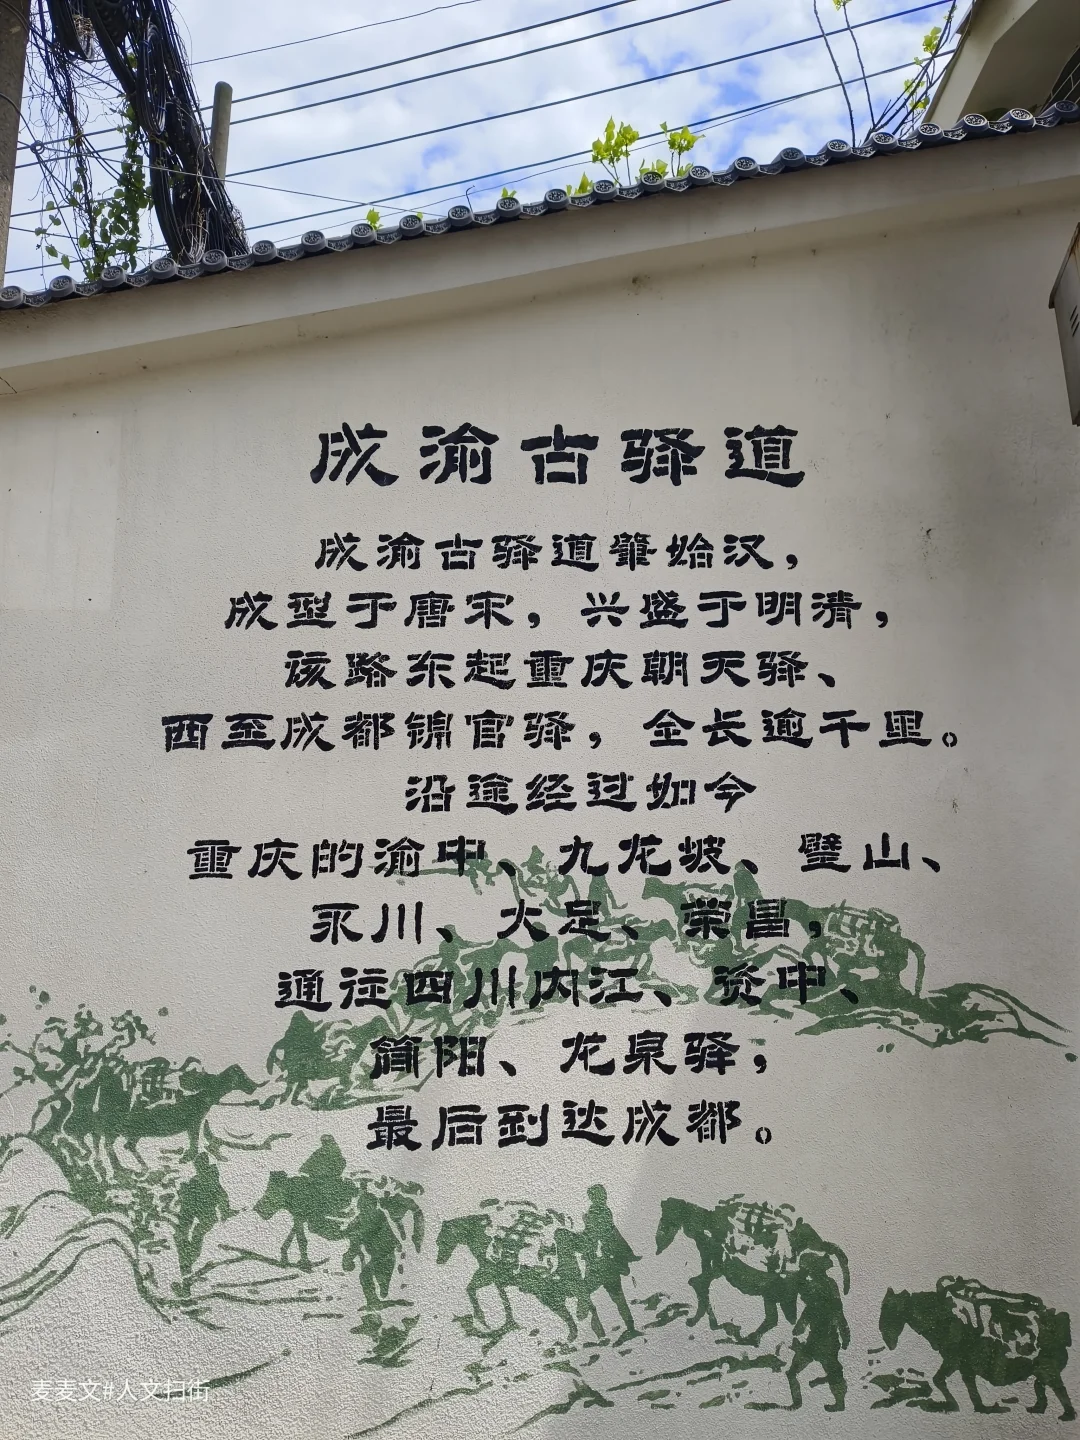 成渝古驿道
成渝古驿道肇始汉，
成型于唐宋，兴盛于明清，
该路东起重庆朝天驿、
西至成都锦官驿，全长逾千里。
沿途经过如今
重庆的渝中、九龙坡、璧山、
永川、大足、荣昌，
通往四川内江、资中、
简阳、龙泉驿，
最后到达成都。
麦麦文#人文扫街